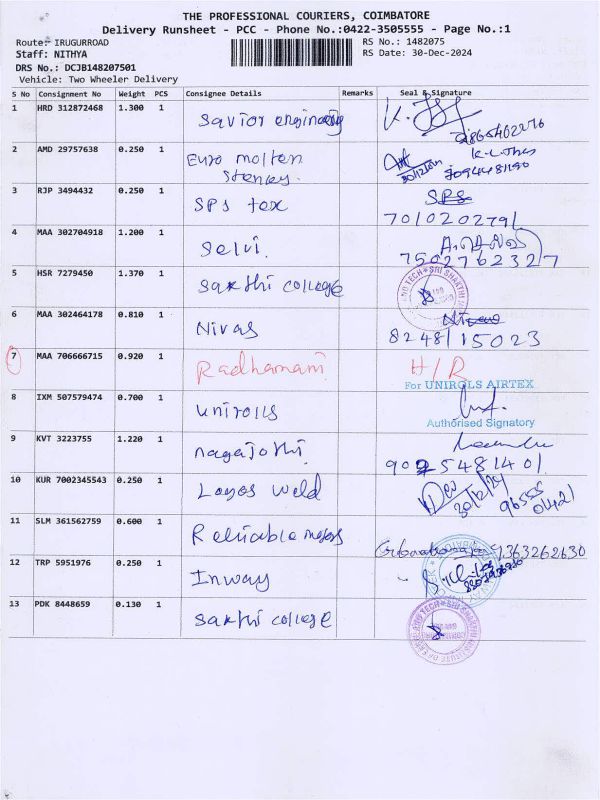 THE PROFESSIONAL COURIERS, COIMBATORE
Delivery Runsheet - PCC - Phone No.:0422-3505555 - Page No.:1
Route: IRUGURROAD
RS No.: 1482075
Staff: NITHYA
RS Date: 30-Dec-2024
DRS No.: DCJB148207501
Vehicle: Two Wheeler Delivery
S No Consignment No Weight PCS Consignee Details Remarks Seal & Signature
1 HRD 312872468 1.300 1 Savior engineering
2 AMD 29757638 0.250 1 Euro molten
30/12/24
3 RJP 3494432 0.250 1 SPS tex SPS
7010202791
4 MAA 302704918 1.200 1 Selvi
7502762327
5 HSR 7279450 1.370 1 Sakthi college
6 MAA 302464178 0.810 1 Nivas
8248115023
7 MAA 706666715 0.920 1 Radhamani H/R
For UNIROLS AIRTEX
8 IXM 507579474 0.700 1 unirolls
Authorised Signatory
9 KVT 3223755 1.220 1 nagajothi
9025481401
10 KUR 7002345543 0.250 1 Logos weld Dev
30/12/24
96555
04421
11 SLM 361562759 0.600 1 Reliable motors
12 TRP 5951976 0.250 1 Inway
13 PDK 8448659 0.130 1 Sakthi college